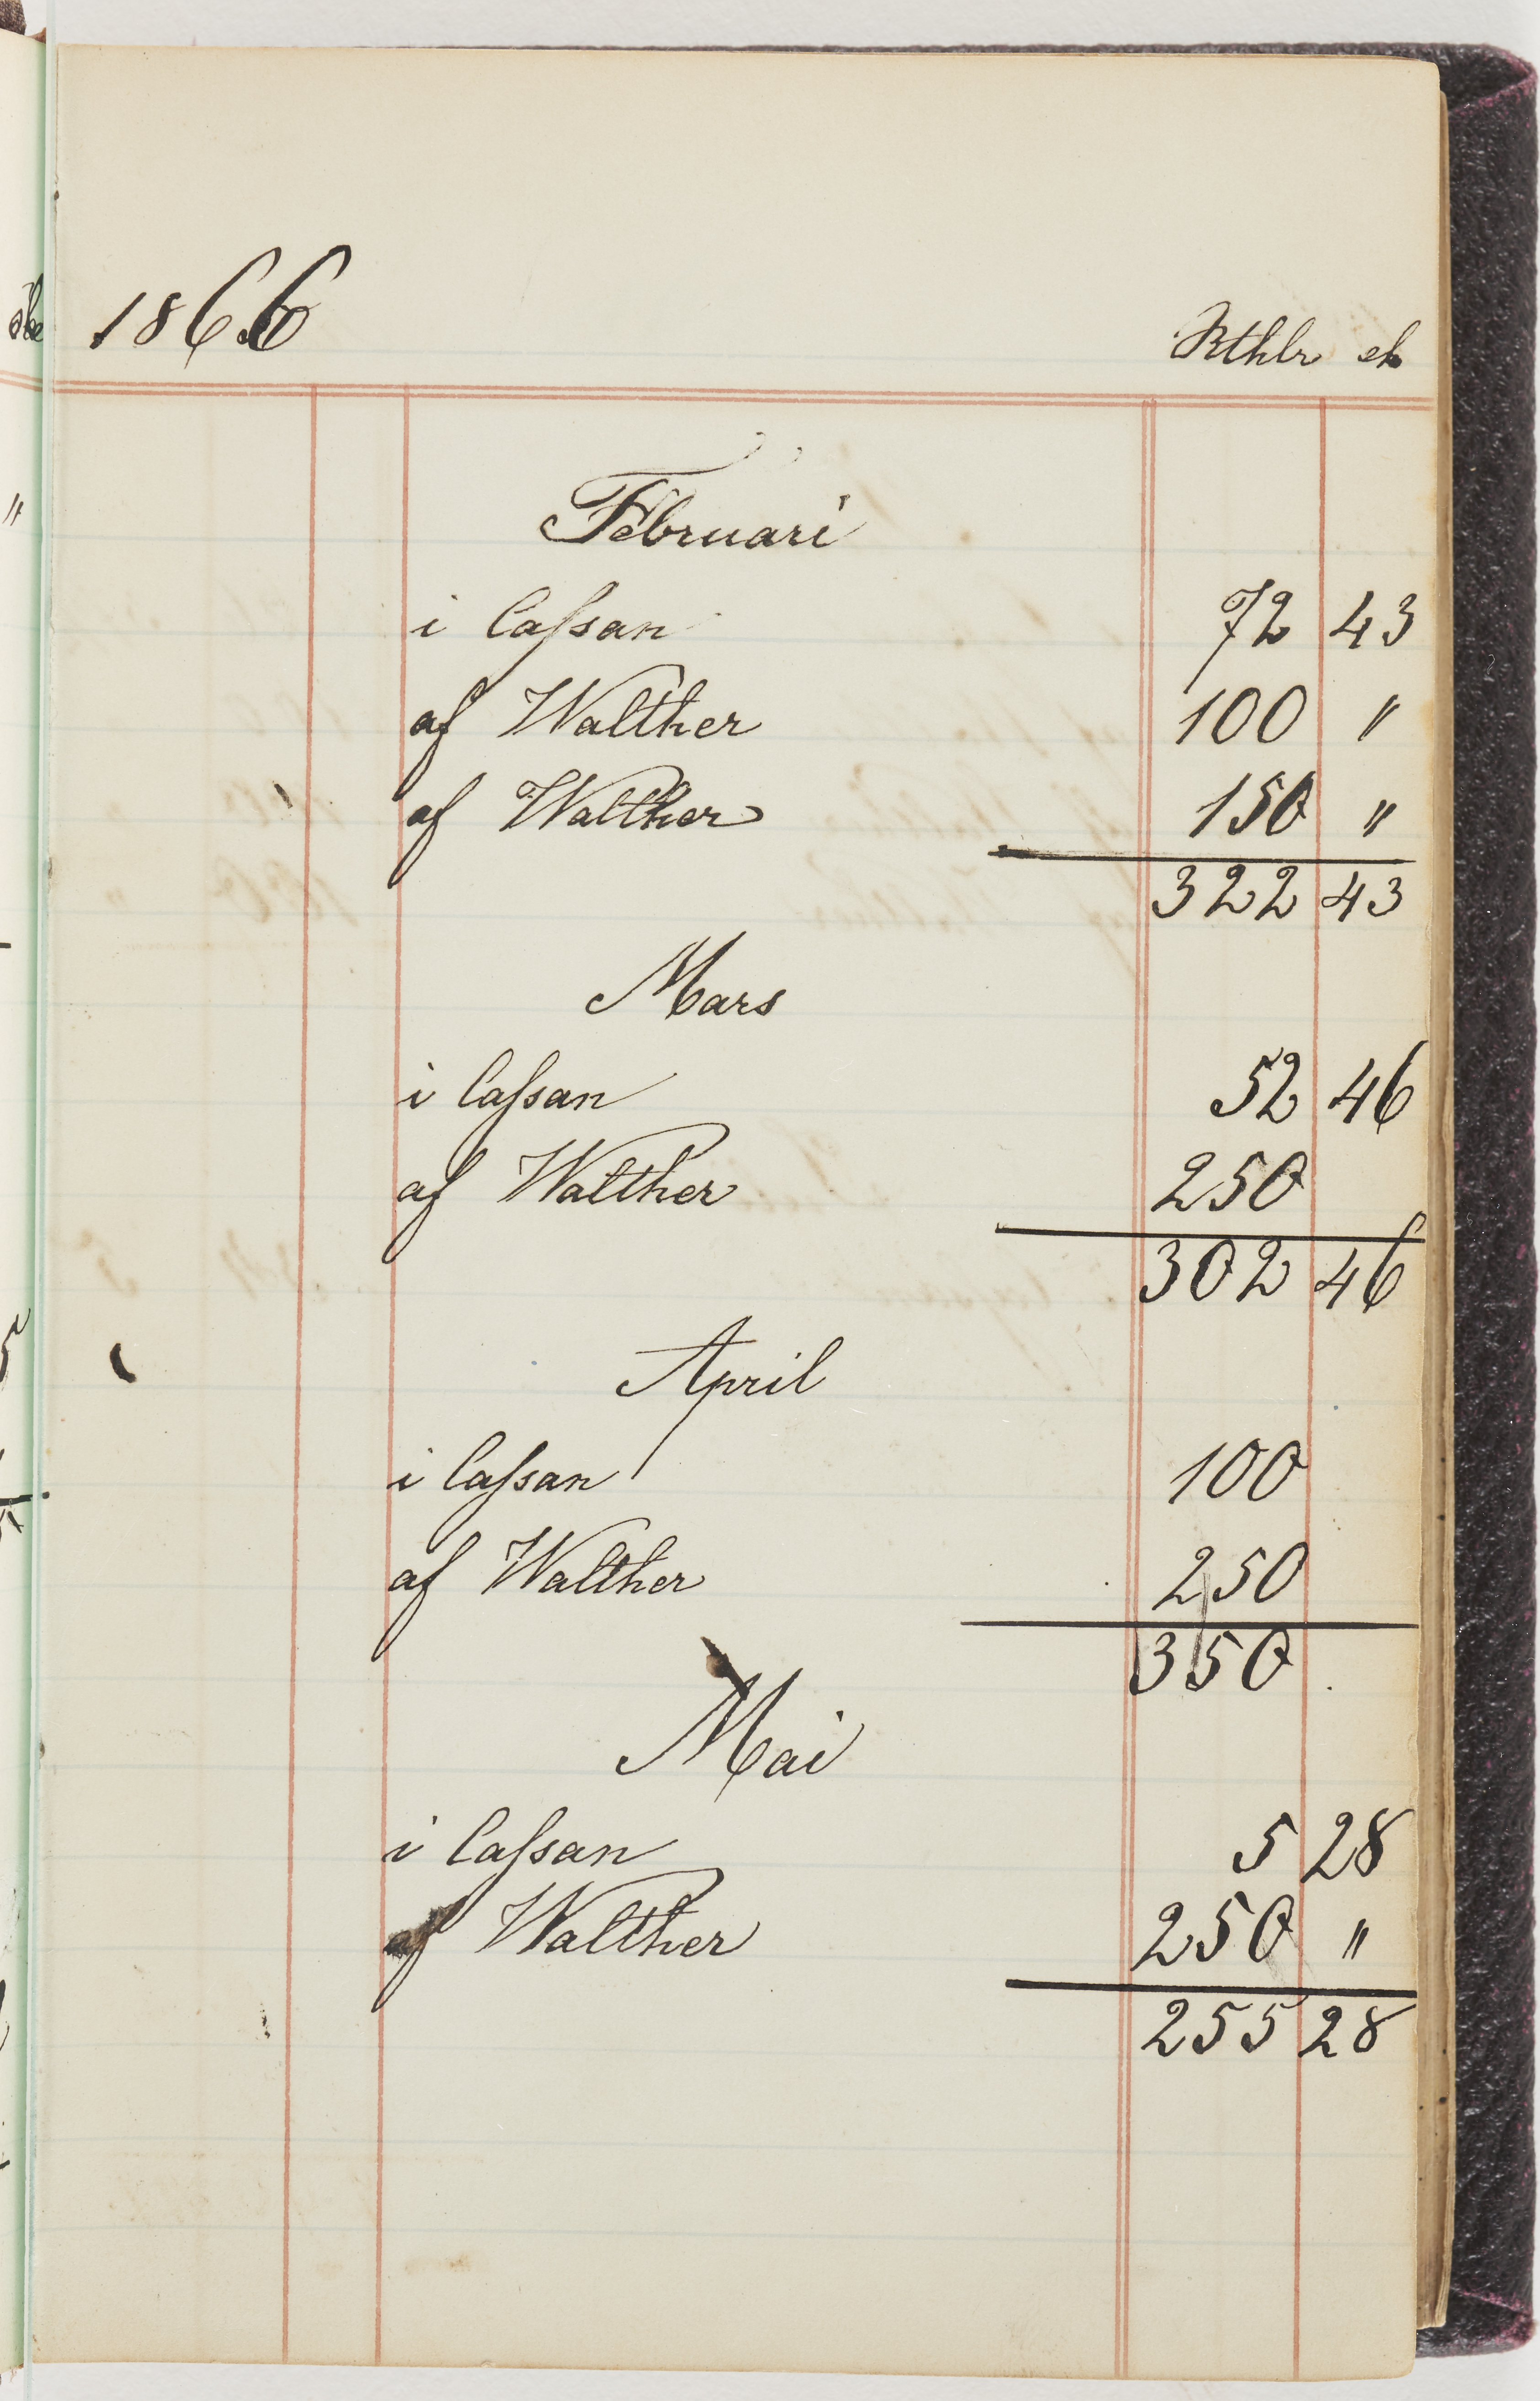 1866 Rthlr
Februari
i Cassan 72 43
af Walther 100 "
af Walther 150 "
322 43
Mars
i Cassan 52 46
af Walther 250
302 46
April
i Cassan 100
af Walther 250
350
Mai
i Cassan 5 28
af Walther 250 "
255 28